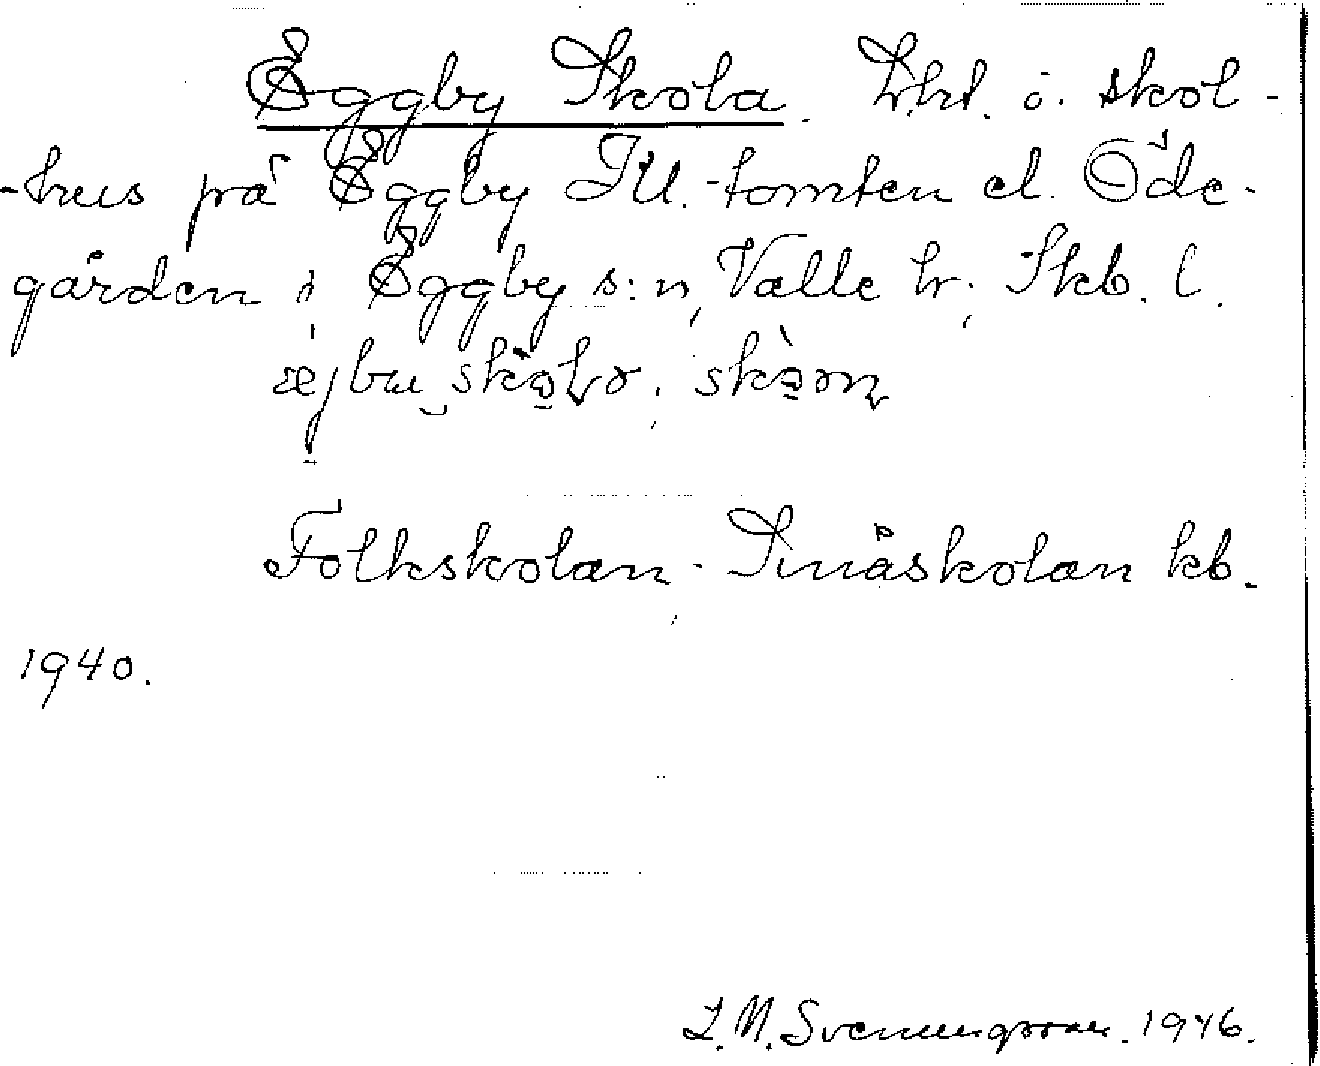 Eggby Skola. Lhl. o. skol-
-hus på Eggby Ill.-tomten el. Öde-
gården i Eggby s:n, Valle hr; Skb. l.
Folkskolan - Småskolan kb.
1940.
S. M. Svenungsson. 1946.